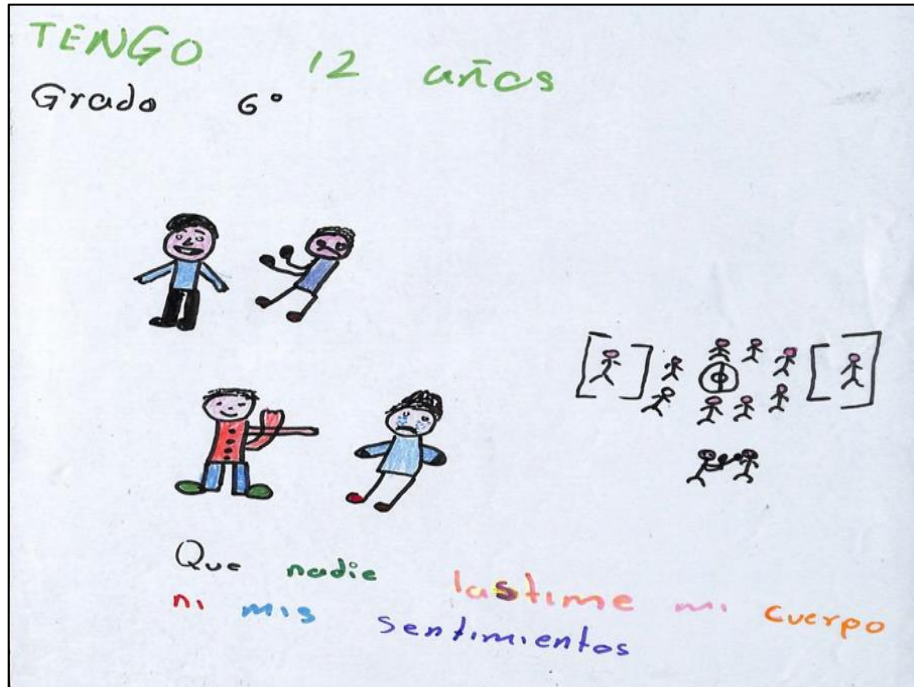 TENGO 12 años
Grado 6°
Que nadie lastime mi cuerpo
ni mis sentimientos